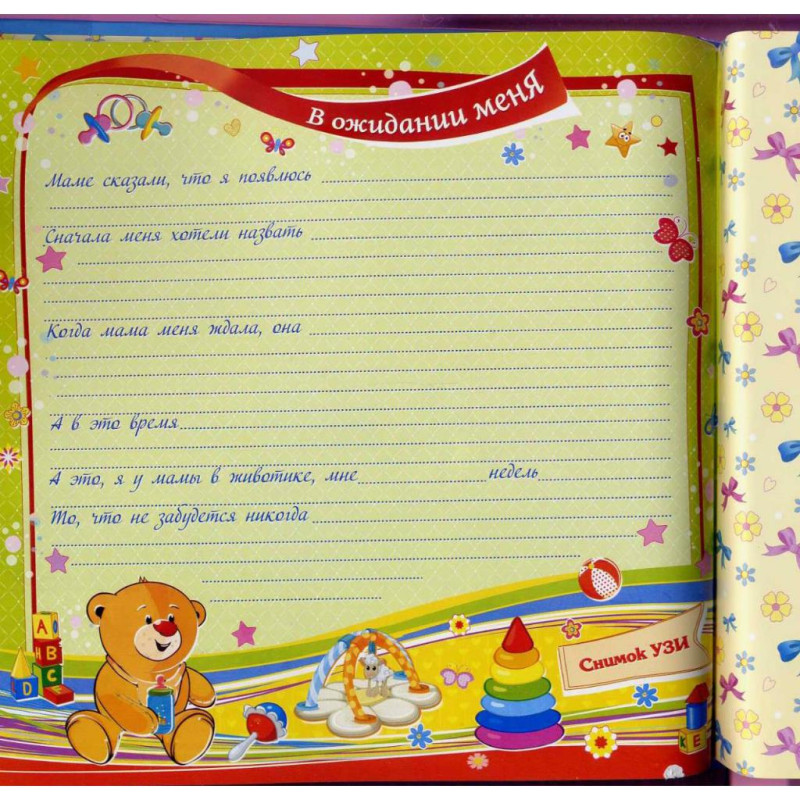 В ожидании меня
Маме сказали, что я появлюсь
Сначала меня хотели назвать
Когда мама меня ждала, она
А в это время
А это, я у мамы в животике, мне недель
То, что не забудется никогда
Снимок УЗИ
A
H B
B C
D E
K E